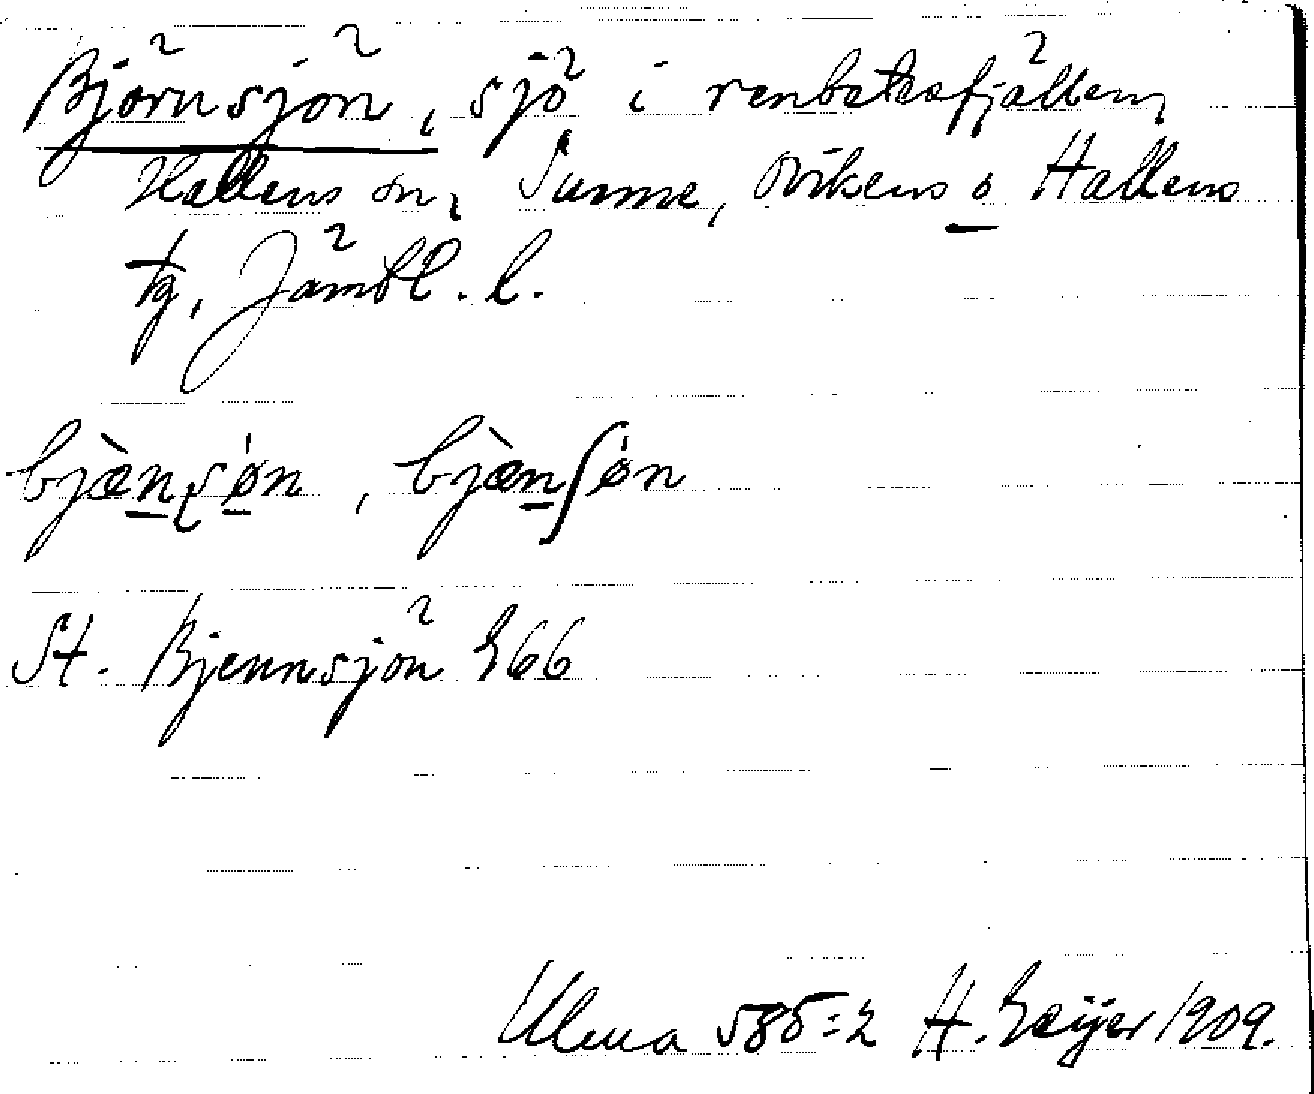 Björnsjön, sjö i renbetesfjällen,
Hallens sn, Sunne, Ovikens o Hallens
tg, Jämtl. l.
bjæ̀n̠ʂǿ̠n, bjæ̀n̠ʃǿn
St. Bjennsjön G66
Ulma 585:2 H. Geijer 1909.